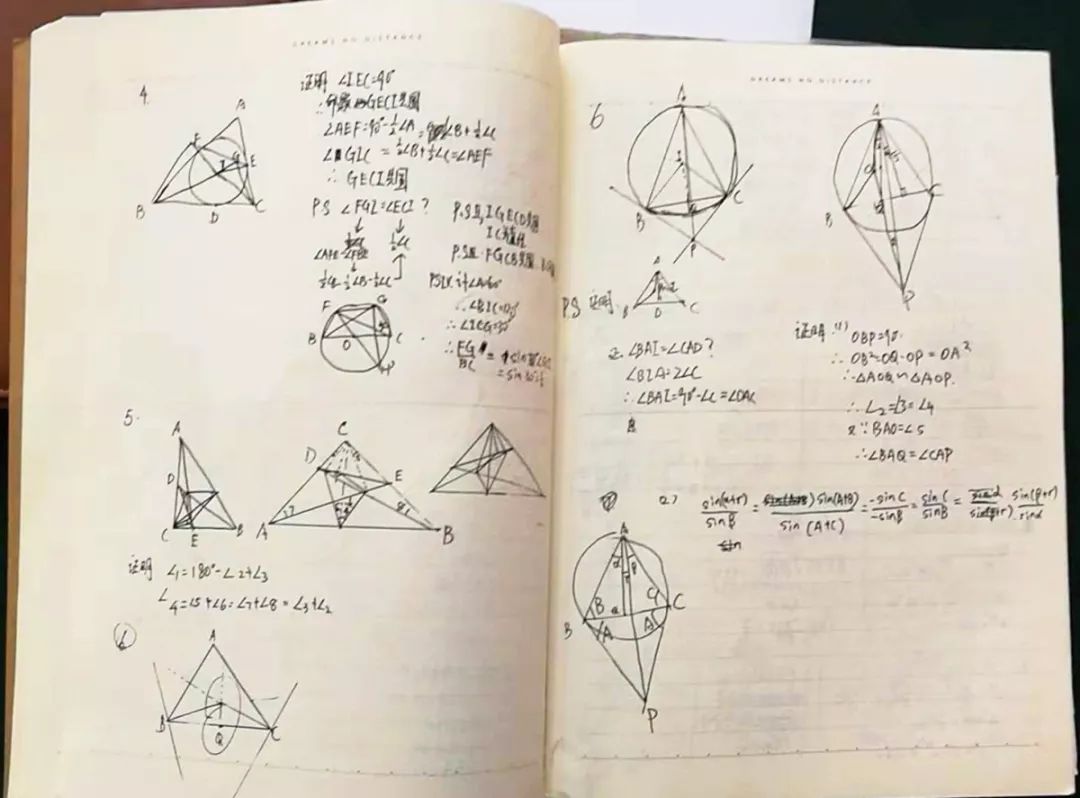 DREAMS NO DISTANCE
4.
A
F
G
E
I
B
D
C
证明 ∠IEC=90°
GECI共圆
∠AEF=90°-½∠A=½∠B+½∠C
∠GIC=½∠B+½∠C=∠AEF
∴ GECI共圆
P.S ∠FGI=∠ECI?
½∠C
P.S II, IGECD共圆
IC为直径
P.S III. FGCB共圆
P.S IV. 计∠A=60°
∴∠BIC=120°
∴∠ICG=30°
∴FG/BC=
F
G
B
O
C
5.
A
D
C
E
B
C
D
E
A
B
证明 ∠1=180°-∠2+∠3
∠4=∠5+∠6=∠7+∠8=∠3+∠2
6
A
B
Q
C
DREAMS NO DISTANCE
6
A
I
B
Q
C
P
A
B
C
P
P.S 证明.
A
B
D
C
∠BAI=∠CAD?
∠BIA=2∠C
∴∠BAI=90°-∠C=∠DAC
证明 (1) OBP=90.
∴ OB²=OQ·OP=OA²
∴△AOQ∽△AOP.
∴ ∠2=∠3=∠4
又∵BAO=∠5
∴∠BAQ=∠CAP
(2) sin(α+r)/sinβ = sin(A+B)/sin(A+C) = -sinC/-sinB = sinC/sinB = sin(β+r)/sinα
A
α
β
r
B
B
Q
C
C
A
A
P